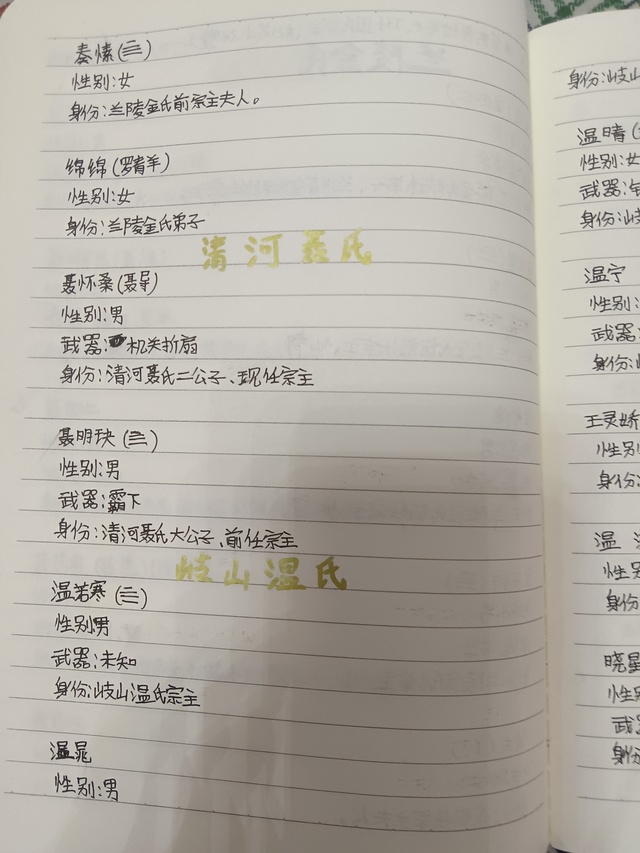 秦愫(三)
性别:女
身份:兰陵金氏前宗主夫人。
绵绵(罗青羊)
性别:女
身份:兰陵金氏弟子
清河聂氏
聂怀桑(聂导)
性别:男
武器:机关折扇
身份:清河聂氏二公子、现任宗主
聂明玦(三)
性别:男
武器:霸下
身份:清河聂氏大公子、前任宗主
岐山温氏
温若寒(三)
性别:男
武器:未知
身份:岐山温氏宗主
温晁
性别:男
身份:岐山
温晴
性别:女
武器:
身份:岐
温宁
性别:
武器:
身份:
王灵娇
性别
身份:
温
性别
身份
晓星
性别
武
身份